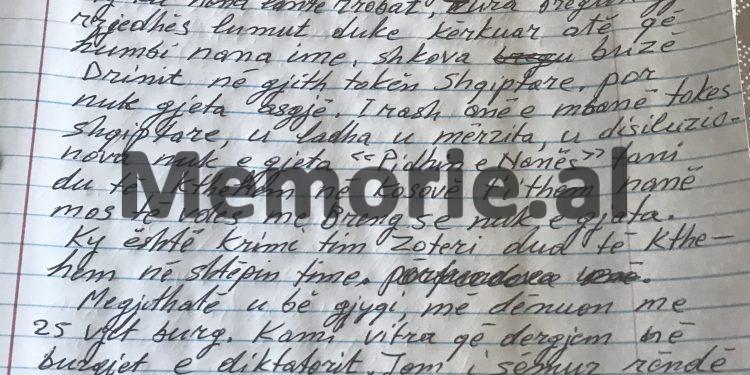 nana rrobat,
rrjedhës lumut duke kërkuar atë që
humbi nana ime, shkova brizë
Drinit në gjith tokën Shqiptare, por
nuk gjeta asgjë. I rash anë e mbanë tokes
Shqiptare, u lodha u mërzita, u disiluzio-
nova nuk e gjeta <<Pidhin e Nanës>> tani
du të kthehem në Kosovë ti them nanë
mos të vdes me breng se nuk e gjata.
Ky është krimi tim Zoteri dua të kthe-
hem në shtëpin time.
Megjithatë u bë gjygi, më dënuan me
25 vjet burg. Kami vitra që dergjem në
burgjet e diktatorit. Jam i sëmur rëndë
Memorie.al